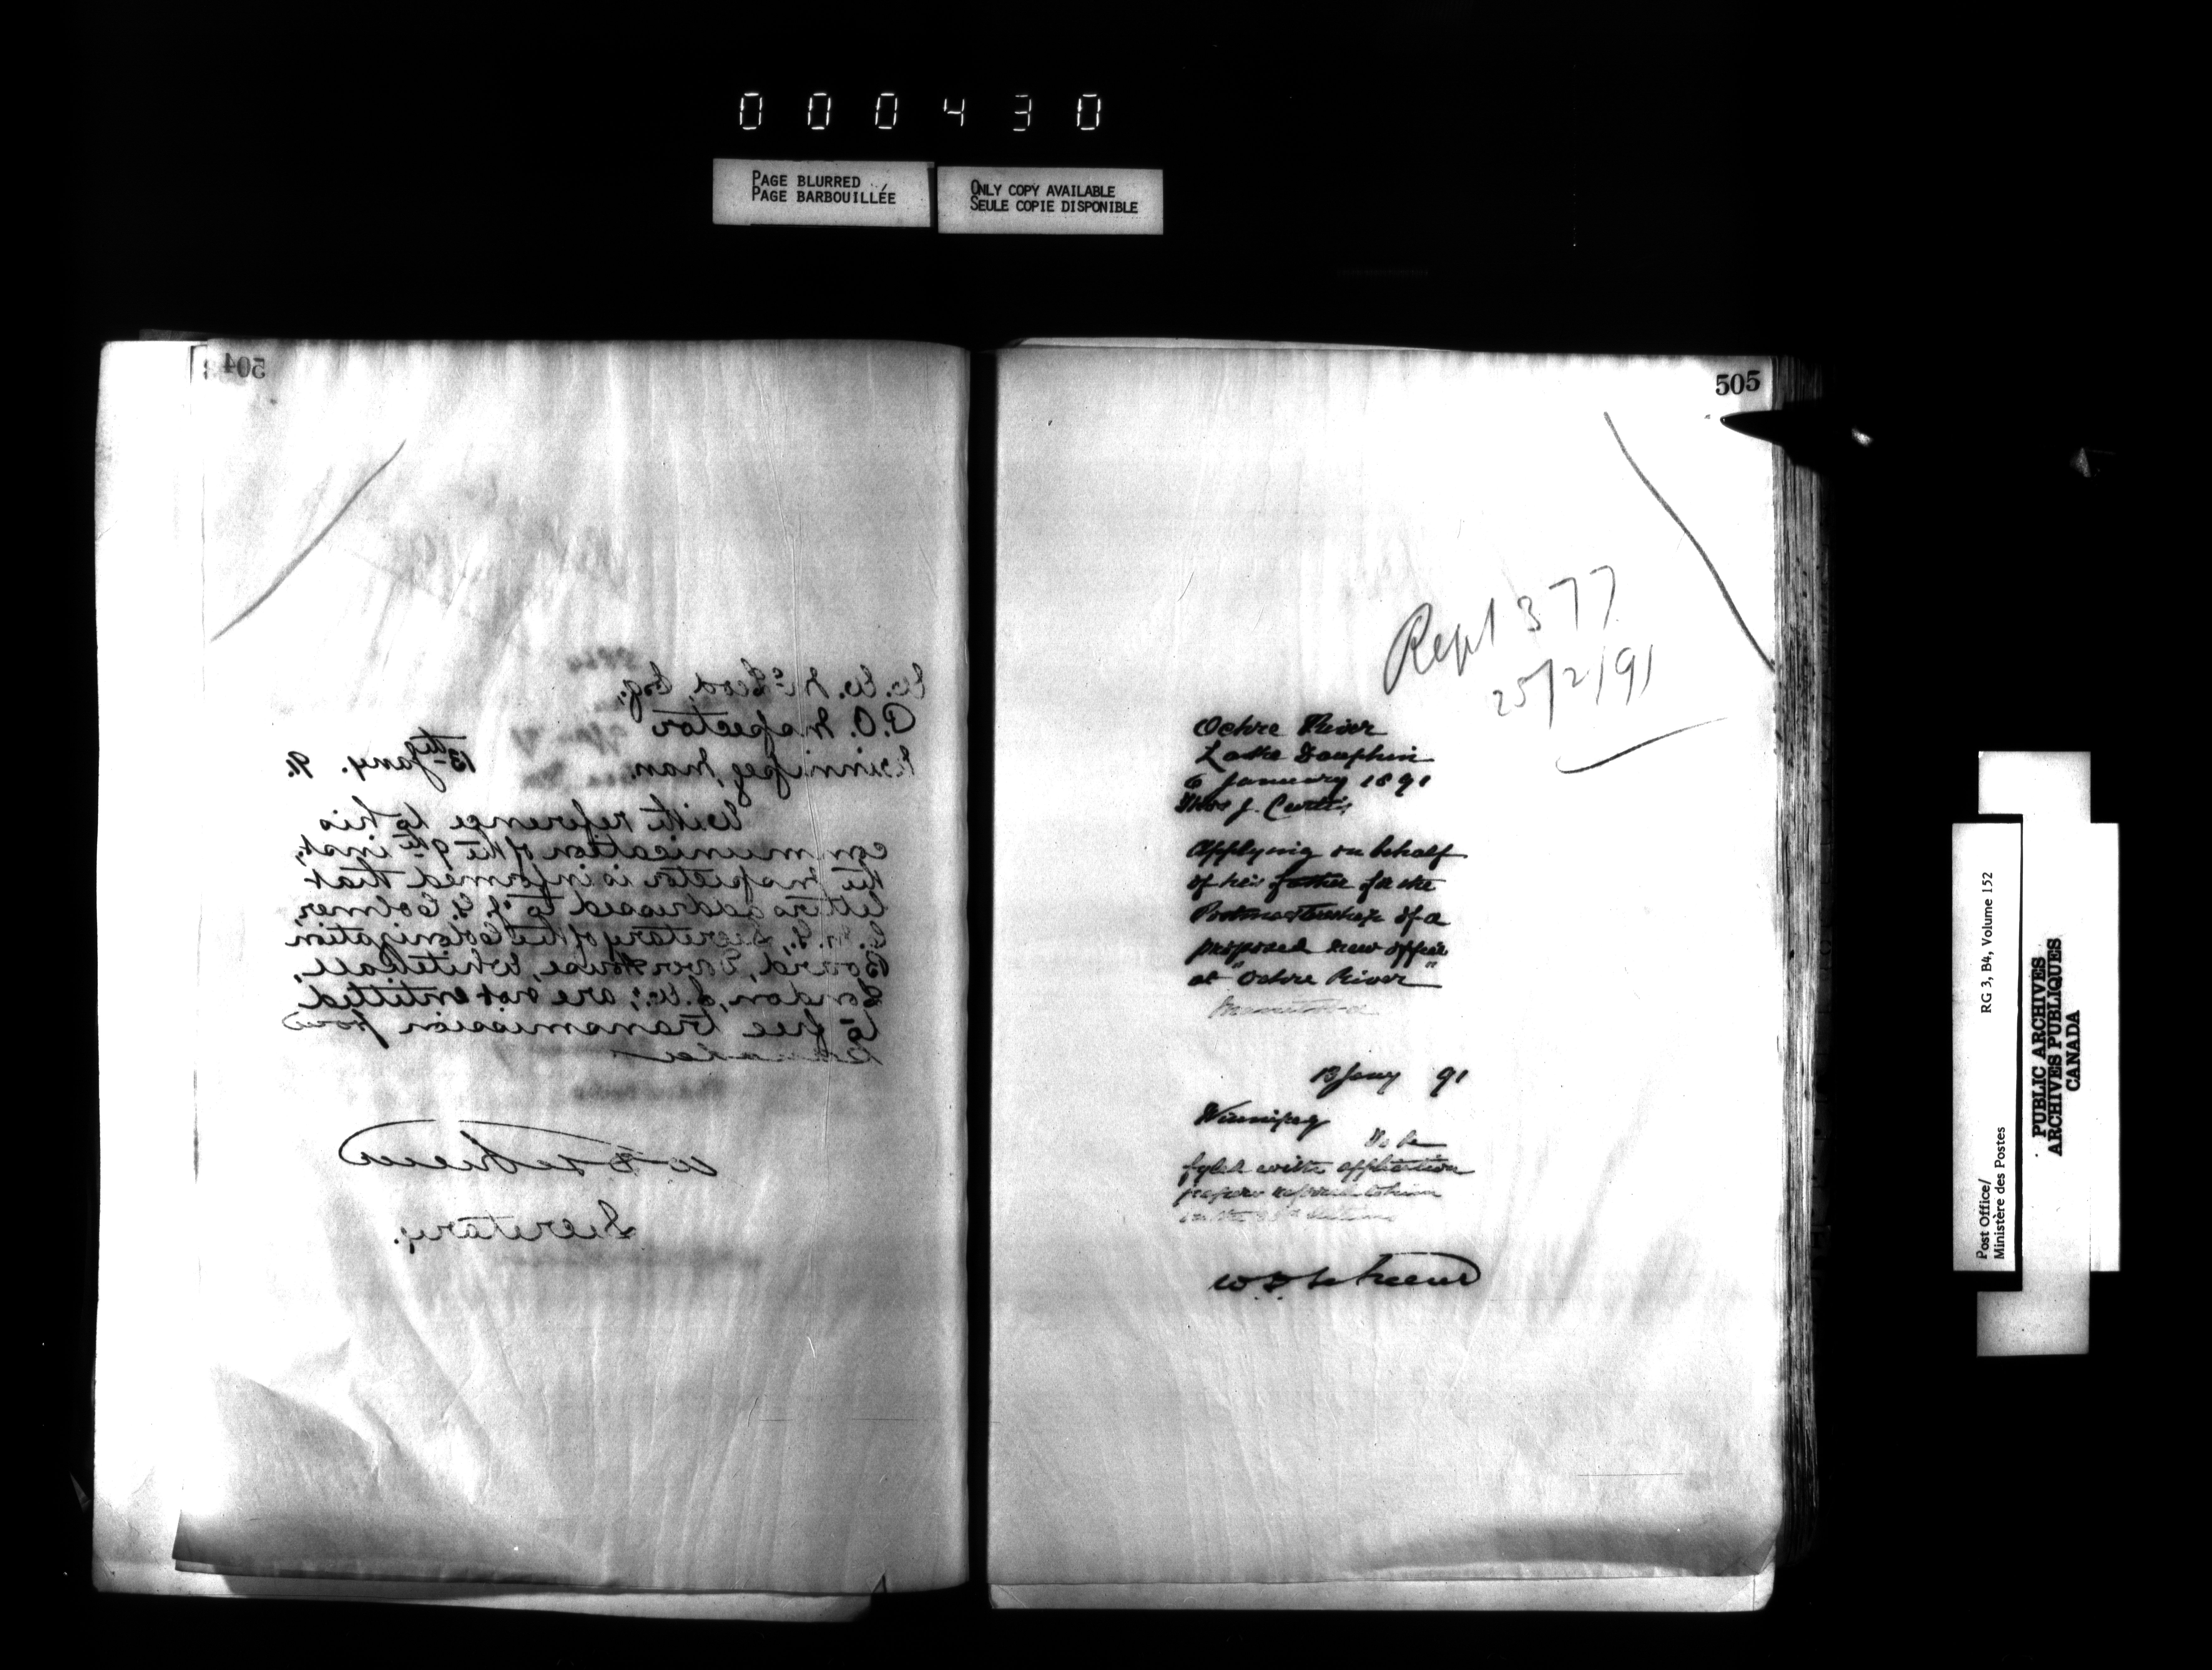 000430
PAGE BLURRED
PAGE BARBOUILLÉE
ONLY COPY AVAILABLE
SEULE COPIE DISPONIBLE
504
W. W. McLeod, Esq.,
P.O. Inspector
Winnipeg, Man.
13th Jany. 91.
With reference to his
communication of the 9th inst.,
the Inspector is informed that
letters addressed to J. G. Colmer,
C.M.G., Secretary of the Colonization
Board, Dover House, Whitehall,
London, S.W.; are not entitled
to free transmission from
Canada
Secretary.
505
Rept 377
25/2/91
Ochre River
Lake Dauphin
6 January 1891
Thos J. Curtis
Applying on behalf
of his father for the
Postmastership of a
proposed new office
at "Ochre River"
Manitoba
13 Jany 91
Winnipeg
To be
fyled with application
papers
Post Office/
Ministère des Postes
RG 3, B4, Volume 152
PUBLIC ARCHIVES
ARCHIVES PUBLIQUES
CANADA